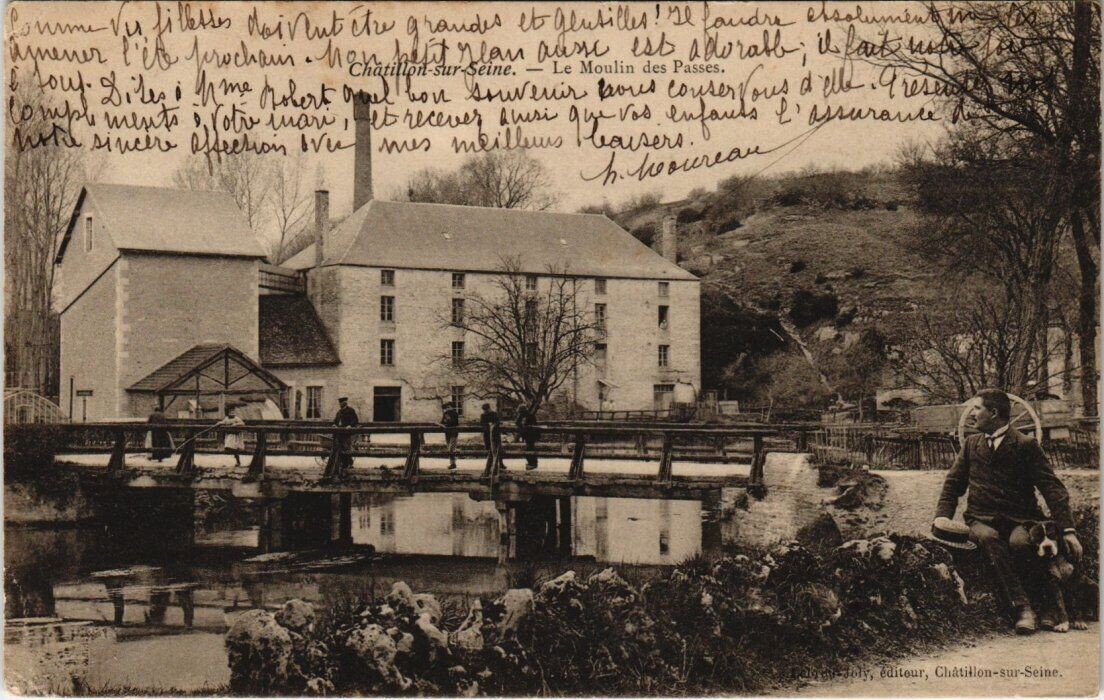 Comme vos fillettes doivent être grandes et gentilles! Il faudra absolument nous les
amener l'été prochain. Mon petit Jean aussi est adorable; il fait notre joie
à tous. Dites à Mme Robert quel bon souvenir nous conservons d'elle. Présentez nos
compliments à votre mari, et recevez ainsi que vos enfants l'assurance de
notre sincère affection avec mes meilleurs baisers.
h. Moureau
Châtillon-sur-Seine. — Le Moulin des Passes.
Joly, éditeur, Châtillon-sur-Seine.